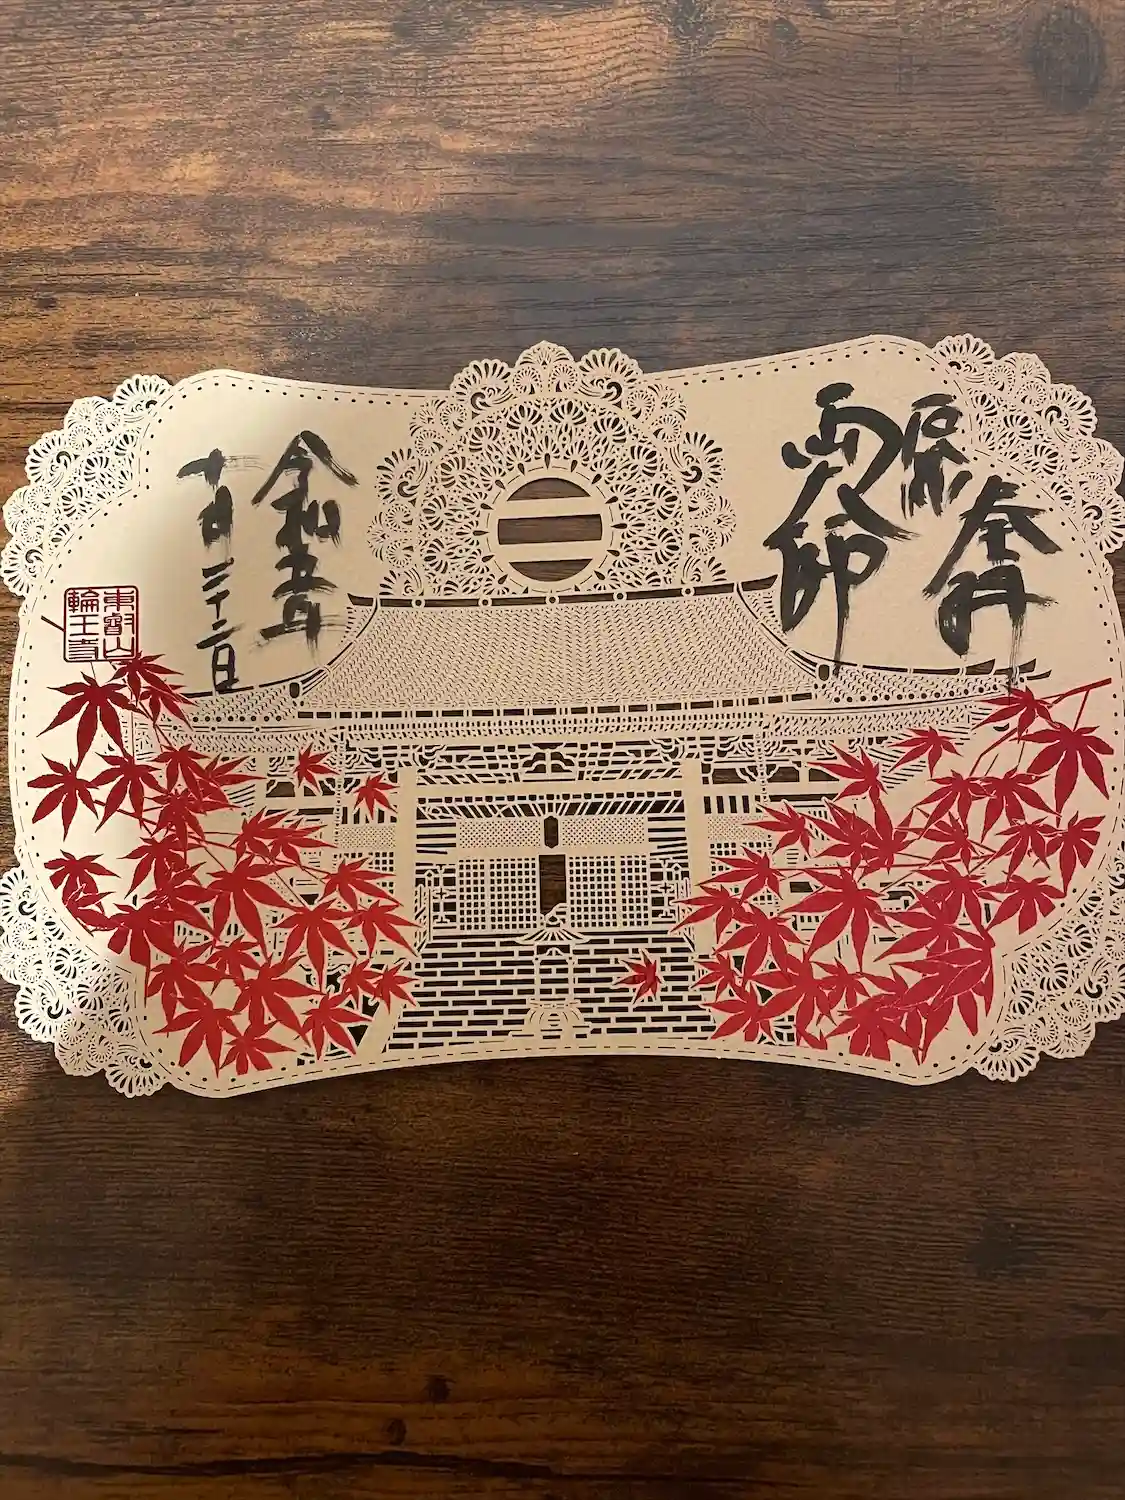 両大師
令和五年
十月二十二日
東叡山
輪王寺